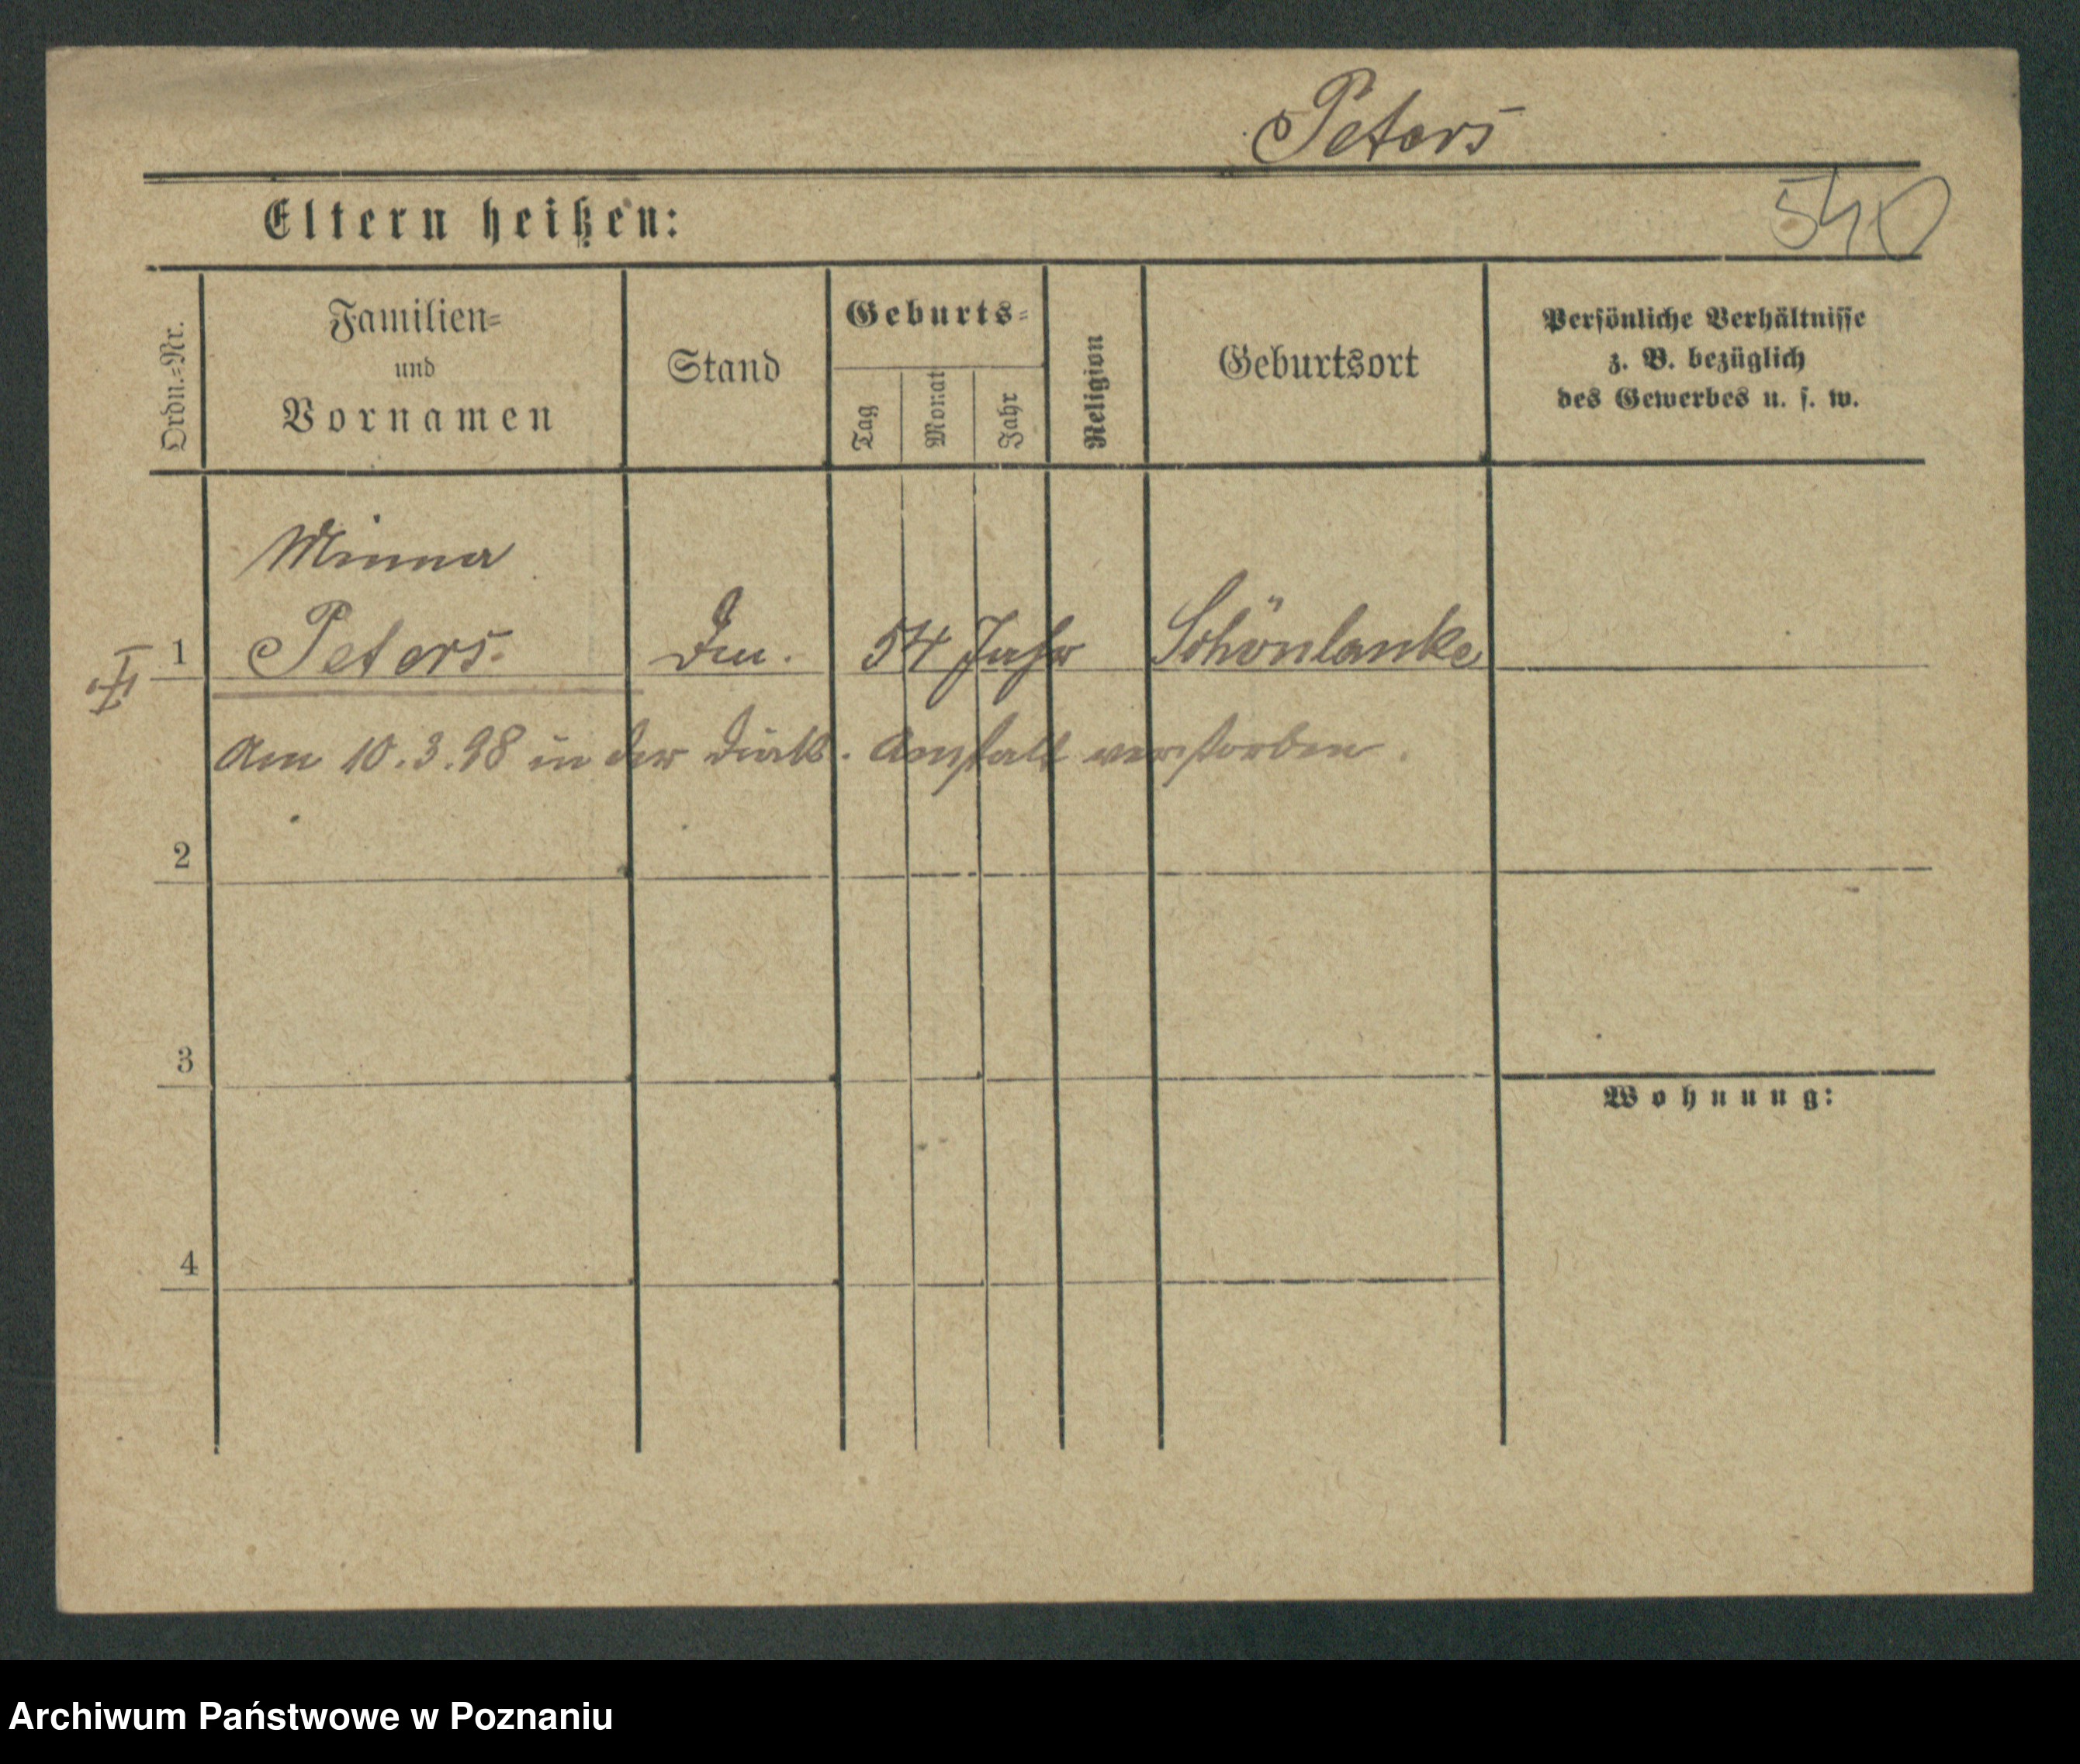 Peters
Eltern heißen:
540
Ordn.=Nr.
Familien=
und
Vornamen
Stand
Geburts=
Tag
Monat
Jahr
Religion
Geburtsort
Persönliche Verhältnisse
z. B. bezüglich
des Gewerbes u. s. w.
Minna
1 Peters. 54 Jahr Schönlanke
Am 10.3.98 in der Anstalt verstorben.
2
3
Wohnung:
4
Archiwum Państwowe w Poznaniu